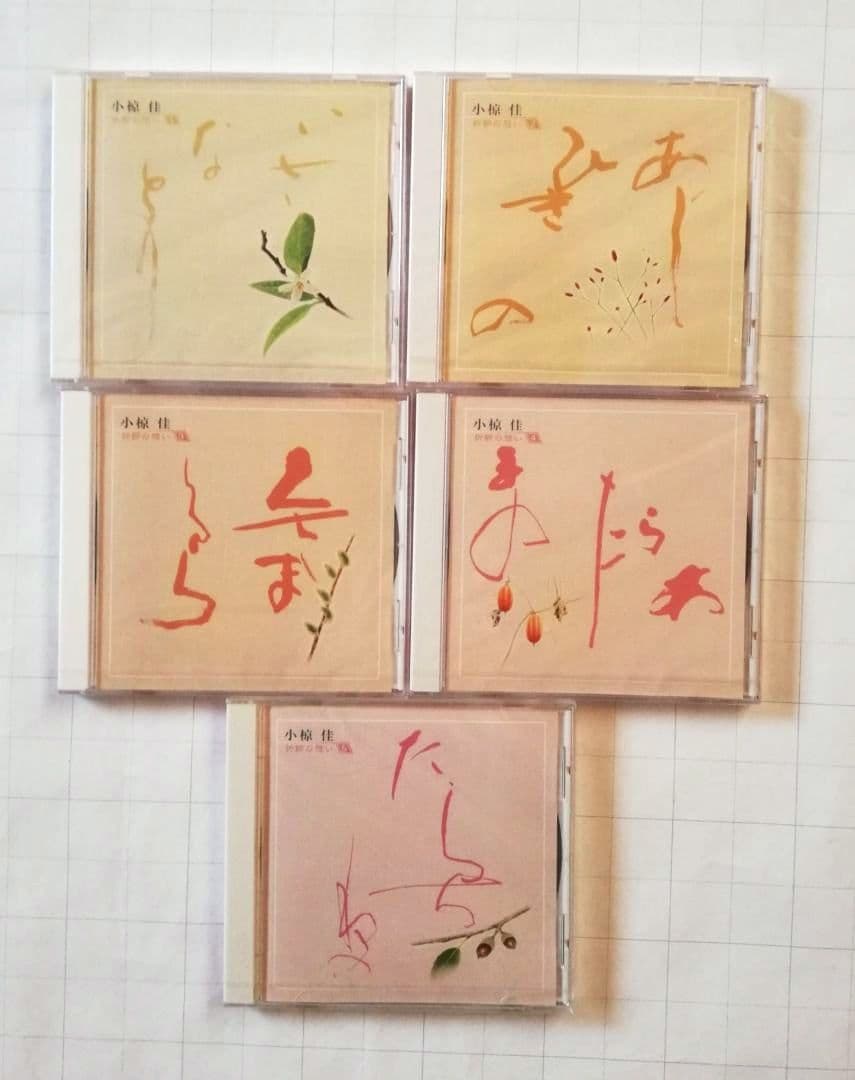 小椋 佳
折節の想い
いさ
な
とり
小椋 佳
折節の想い
あし
ひき
の
小椋 佳
折節の想い
くさま
くら
小椋 佳
折節の想い
あらた
まの
小椋 佳
折節の想い
たらち
ねの